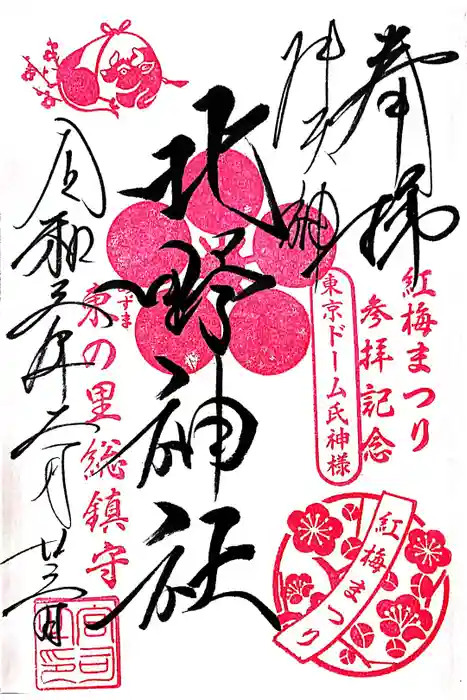 奉拝
紅梅まつり
参拝記念
牛天神
東京ドーム氏神様
北野神社
あずま
東の里総鎮守
令和五年二月
紅梅まつり
宮司之印